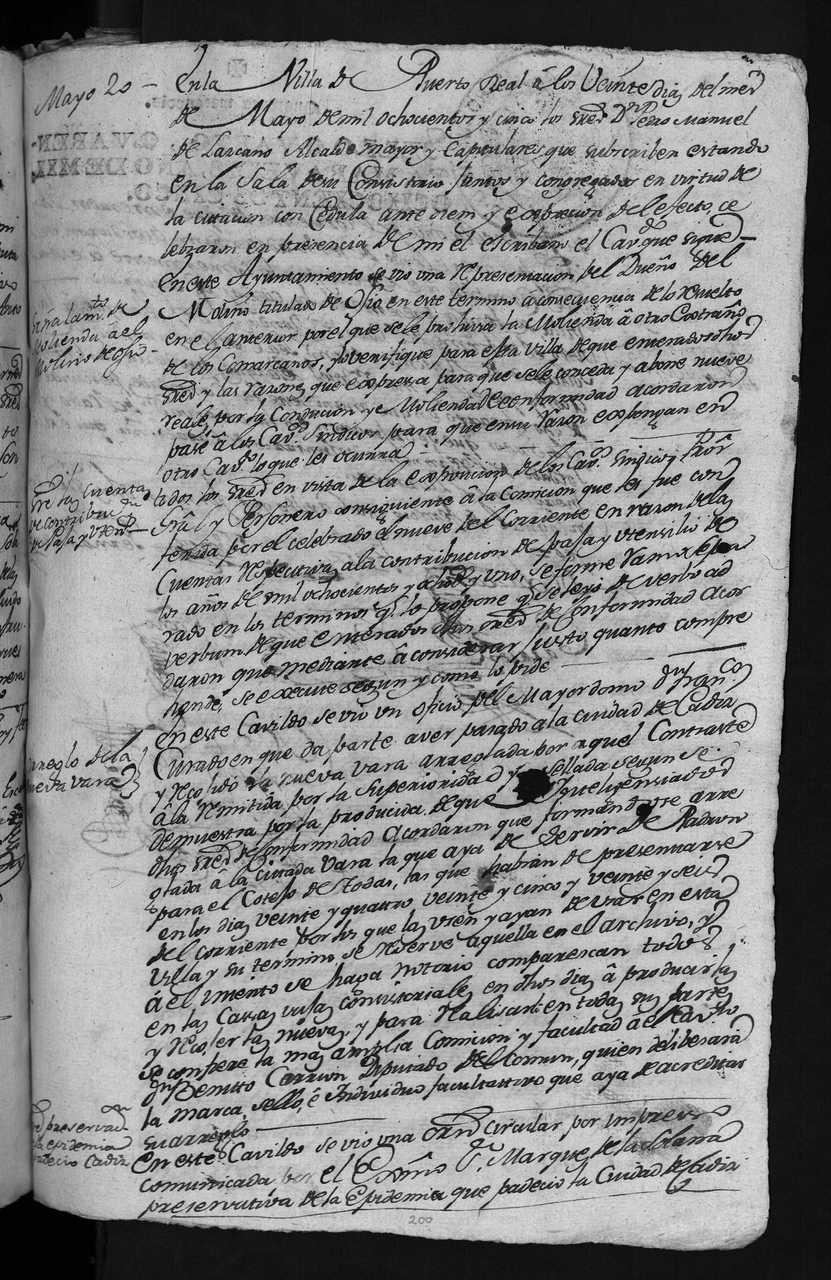 Mayo 20 —
En la Villa de Puerto Real â los Veinte dias del mes
de Mayo de mil ochocientos y cinco los sres Dn Pedro Manuel
de Lazcano Alcalde mayor y Capitulares que subscriben estando
en la Sala de su Consistorio juntos y congregados en virtud de
la citacion con Cedula ante diem y expresion del efecto, ce
lebraron en presencia de mi el escribano el Cavdo que sigue —
Señalamto de
Molienda â el
Molino de Osio
En este Ayuntamiento se vio una representacion del Dueño del
Molino titulado de Osio en este termino aconsecuencia de lo resuelto
en el anterior por el que se le prohivia la Molienda â otro extraño
de los Comarcanos, y lo verifique para esta Villa de que enterados dhos
sres y las razones que expresa para que se le conceda y abone nueve
reales por la Conducion y Molienda de conformidad acordaron
pase â los Cavs Sindicos para que en su razon expongan en
otro Cavdo lo que les ocurra
Sre las Cuentas
de contribucion
de Paja y Utens
los sres en vista de la exposicion de los Cavs Sindicos Pror
Gral y Personero consiguiente â la Comicion que les fue con
ferida por el celebrado el nueve del Corriente en razon de las
Cuentas respectivas a la contribucion de Paja y Utensilio de
los años de mil ochocientos y uno, se forme
rado en los terminos qe lo propone que se leyo de verbo ad
verbum de que enterados dhos sres de Conformidad acor
daron que mediante â considerar justo quanto compre
hende, se execute segun y como lo pide
Arreglo de la
nueva vara
en este Cavildo se vio un oficio del Mayordomo Dn Franco
Curado en que da parte aver pasado a la ciudad de Cadiz
y recojido la nueva vara arreglada por aquel Contraste
â la remitida por la Superioridad y sellada segun se
demuestra por la producida de que inteligenciados
dhos sres de conformidad acordaron que formandose arre
glada â la citada vara la que aya de servir de Padron
para el Cotejo de todas, las que habran de presentarse
en los dias veinte y quatro veinte y cinco y veinte y seis
del corriente por los que las usen y ayan de usar en esta
Villa y su termino se reserve aquella en el archivo, y
â el intento se haga notorio comparescan todos
en las Casas Consistoriales en dhos dias â producirlas
y recojer las nuevas, y para realisarse en todas sus partes
se confiere la mas amplia Comicion y facultad â el Cavro
Dn Benito Carrion Diputado del Comun, quien deliberará
la marca, sello, é Individuo facultativo que aya de acreditar
su arreglo
preservada
la epidemia
padecio Cadiz
En este Cavildo se vio una orn Circular por impreso
comunicada por el Exmo Sr Marques de la Solana
preservativa de la Epidemia que padecio la Ciudad de Cadiz
200